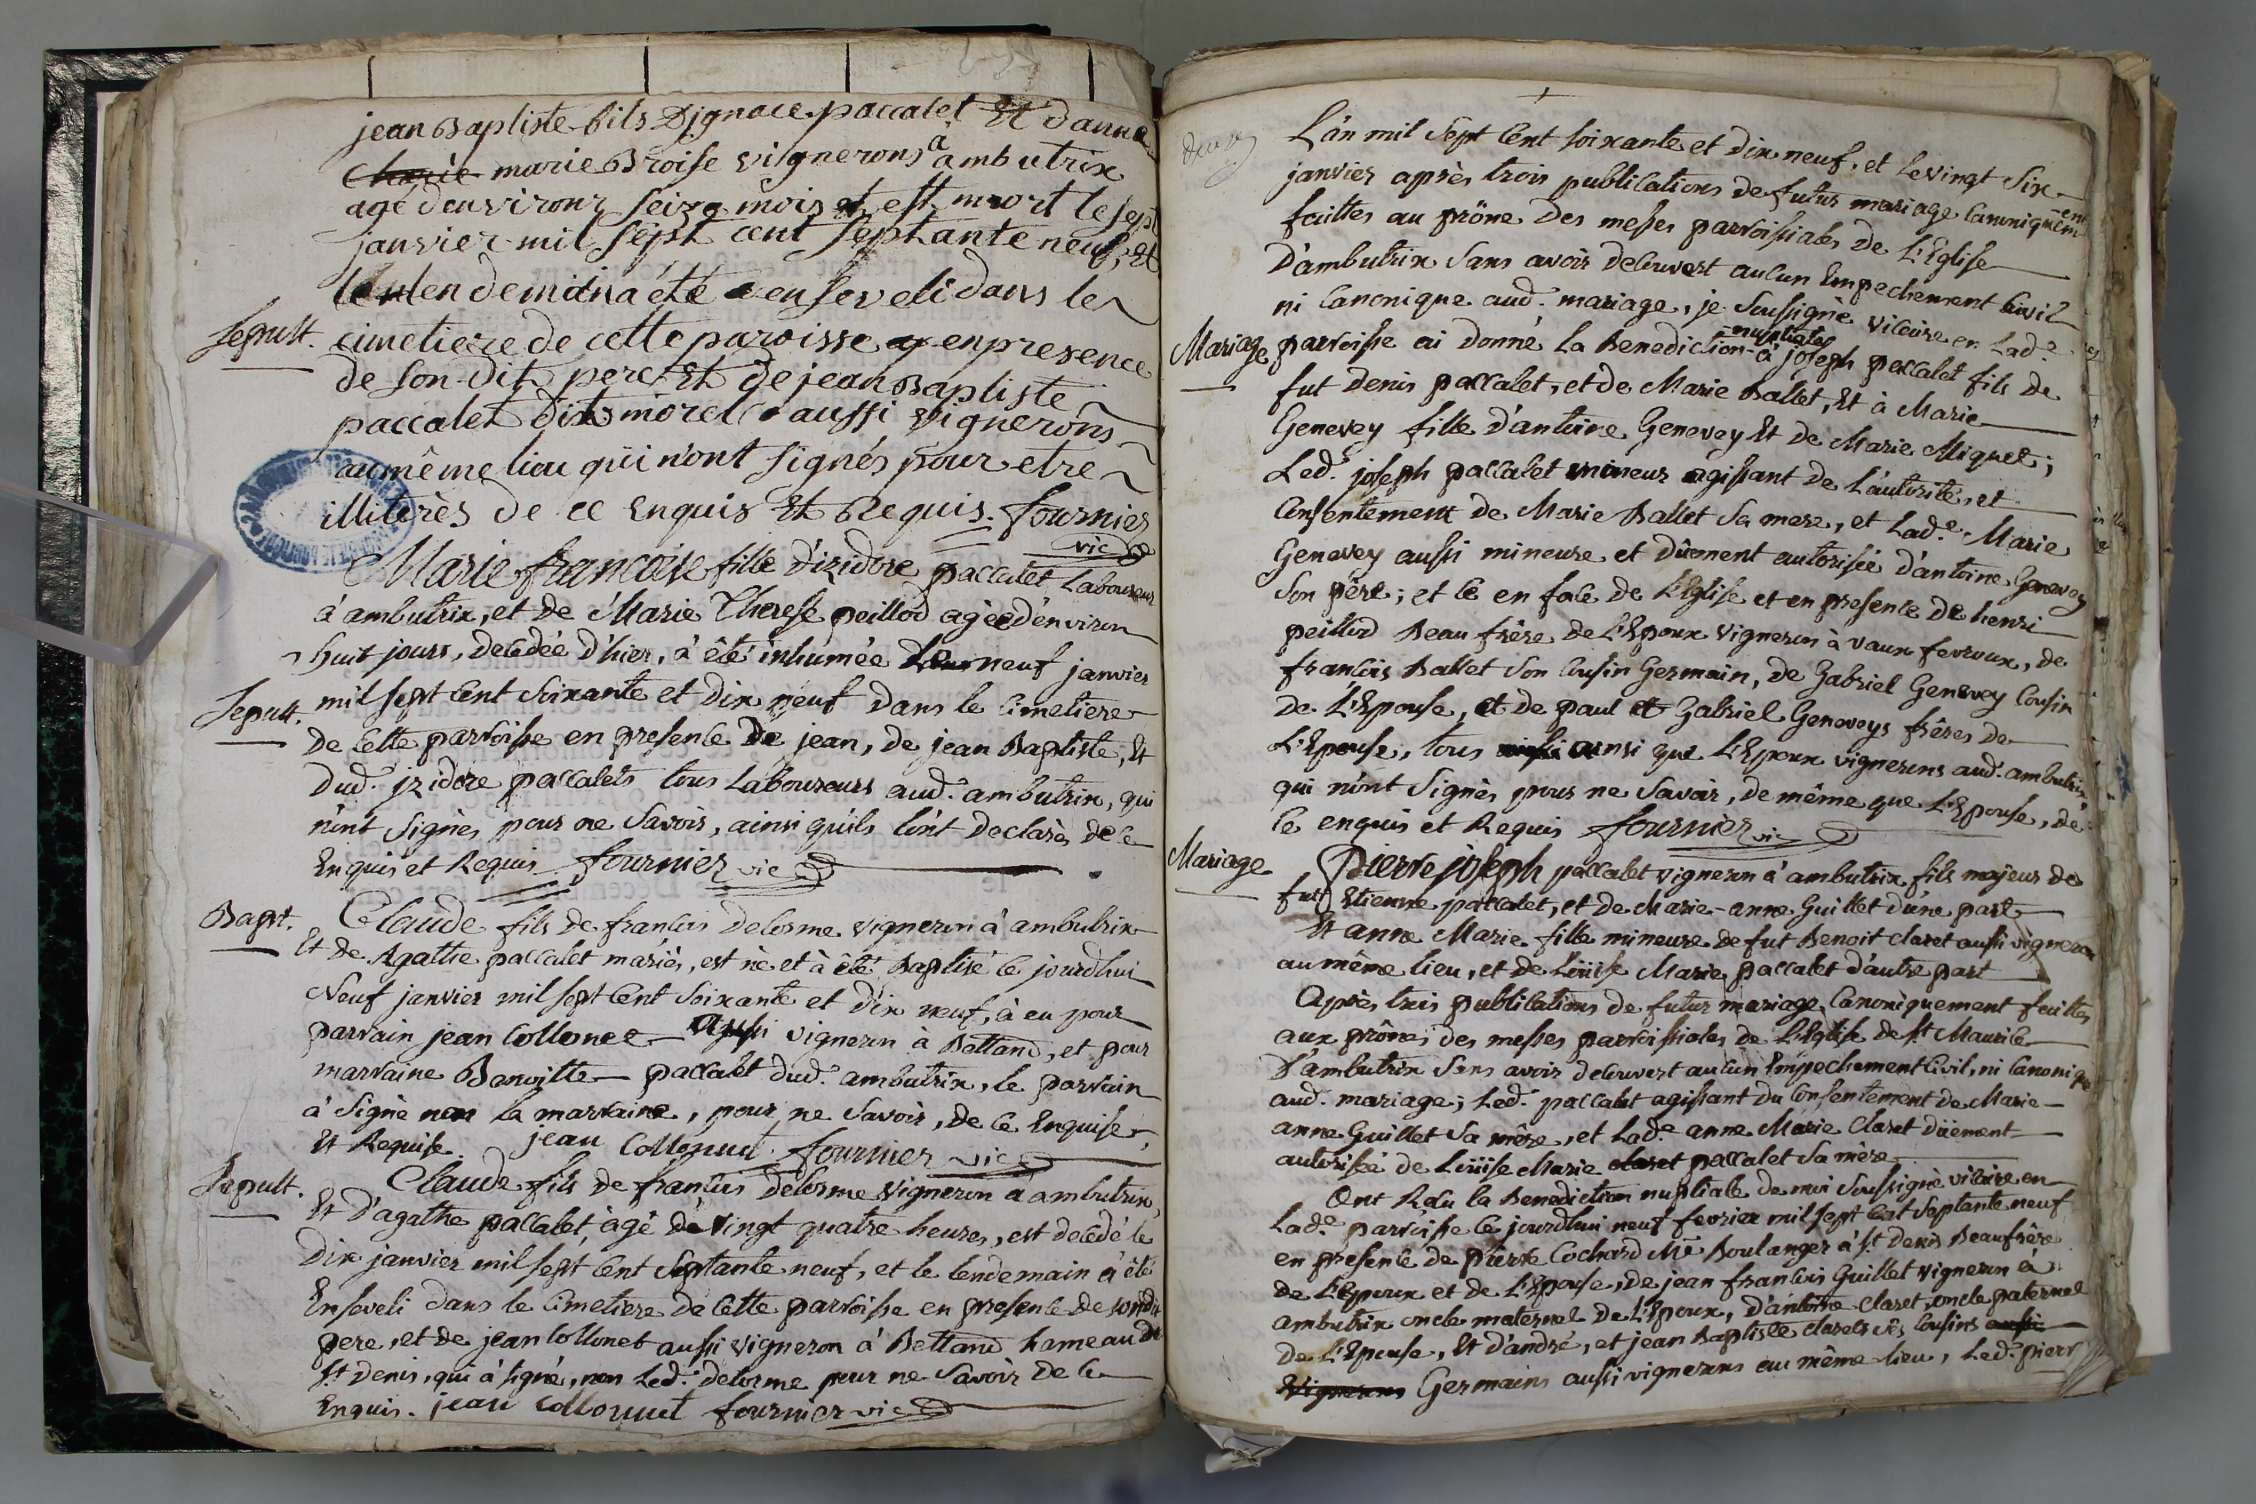 jean Baptiste fils Djgnace paccalet Et danne
marie Broise vignerons à ambutrix
agé denvirons seize mois et est mort le sept
janvier mil sept cent septante neuf, et
le lendemain a été enseveli dans le
Sepult. cimetiere de cette paroisse en presence
de son dit pere Et de jean Baptiste
paccalet dit morel aussi vignerons
au même lieu qui n'ont signés pour etre
illiterès de ce Enquis Et Requis. fournier
vic
Marie francoise fille d'izidore paccalet Laboureur
à ambutrix, et de Marie Therese peillod agée d'environ
huit jours, decedée d'hier, à été inhumée Le neuf janvier
Sepult. mil sept cent soixante et dix neuf dans le cimetiere
de cette parroisse en presence de jean, de jean Baptiste, Et
dud. jzidore paccalets tous Laboureurs aud. ambutrix, qui
n'ont signés pour ne savoir, ainsi qu'ils l'ont declarés de ce
Enquis et Requis fournier vic
Bapt. Claude fils de francois Delorme vigneron à ambutrix
Et de Agathe paccalet mariés, est né et à été Baptisé ce jourdhui
Neuf janvier mil sept cent soixante et dix neuf, à eu pour
parrain jean Collonet aussi vigneron à Bettand, et pour
marraine Benoitte paccalet dud. ambutrix, le parrain
à signé non la marraine, pour ne savoir, de ce Enquise
Et Requise. jean Collonut fournier vic
Sepult. Claude fils de francois delorme vigneron à ambutrix,
Et d'agathe paccalet, àgé de vingt quatre heures, est decedé le
dix janvier mil sept cent septante neuf, et le lendemain à été
Enseveli dans le cimetiere de cette parroisse en presence de sondit
pere, et de jean Collonet aussi vigneron à Bettand hameau de
St denis, qui à signé, non Led. delorme pour ne savoir de ce
Enquis. jean collonnut fournier vic
L'an mil sept cent soixante et dix neuf, et le vingt six
janvier après trois publications de futur mariage canoniquem̄ent
faittes au prône des messes parroissiales de L'Eglise
D'ambutrix sans avoir decouvert aucun Empechement civil
ni canonique aud. mariage, je soussigné vicaire en Lad.e
Mariage parroisse ai donné la Benediction nuptiale à joseph paccalet fils de
fut denis paccalet, et de Marie Ballet, Et à Marie
Genevey fille d'antoine Genevey Et de Marie Miguet;
Led. joseph paccalet mineur agissant de L'autorité, et
Consentement de Marie Ballet sa mere, et Lad.e Marie
Genevey aussi mineure et dûement autorisée d'antoine Genevey
son père; et ce en face de L'Eglise et en presence de henri
peillod Beau frère de L'Epoux vigneron à vaux fevroux, de
francois Ballet son cousin Germain, de Gabriel Genevey Cousin
de L'Epouse, et de paul et Gabriel Geneveys frères de
L'Epouse, tous ainsi que L'Epoux vignerons aud. ambutrix
qui n'ont signés pour ne savoir, de même que L'Epouse, de
ce enquis et Requis fournier vic
Mariage Pierre joseph paccalet vigneron à ambutrix fils majeur de
fut Etienne paccalet, et de Marie-anne Guillet d'une part
Et anne Marie fille mineure de fut Benoit claret aussi vigneron
au même lieu, et de Loüise Marie paccalet d'autre part
Après trois publications de futur mariage Canoniquement faittes
aux prônes des messes parroissiales de L'Eglise de St Maurice
D'ambutrix sans avoir decouvert aucun Empechement Civil, ni Canonique
aud. mariage; Led. paccalet agissant du Consentement de Marie-
anne Guillet sa mère, et Lad.e anne Marie Claret düement
autorisée de Loüise Marie paccalet sa mère
Ont Recu la Benediction nuptiale de moi soussigné vicaire en
Lad.e parroisse ce jourdhui neuf fevrier mil sept cent septante neuf
en presence de pierre Cochard Me Boulanger à St denis Beaufrère
de L'Epoux et de L'Epouse, de jean francois Guillet vigneron à
ambutrix oncle maternel de L'Epoux, d'antoine claret oncle paternel
de L'Epouse, Et d'andré, et jean Baptiste clarets ses Cousins
Germains aussi vignerons au même lieu, Led. pierr